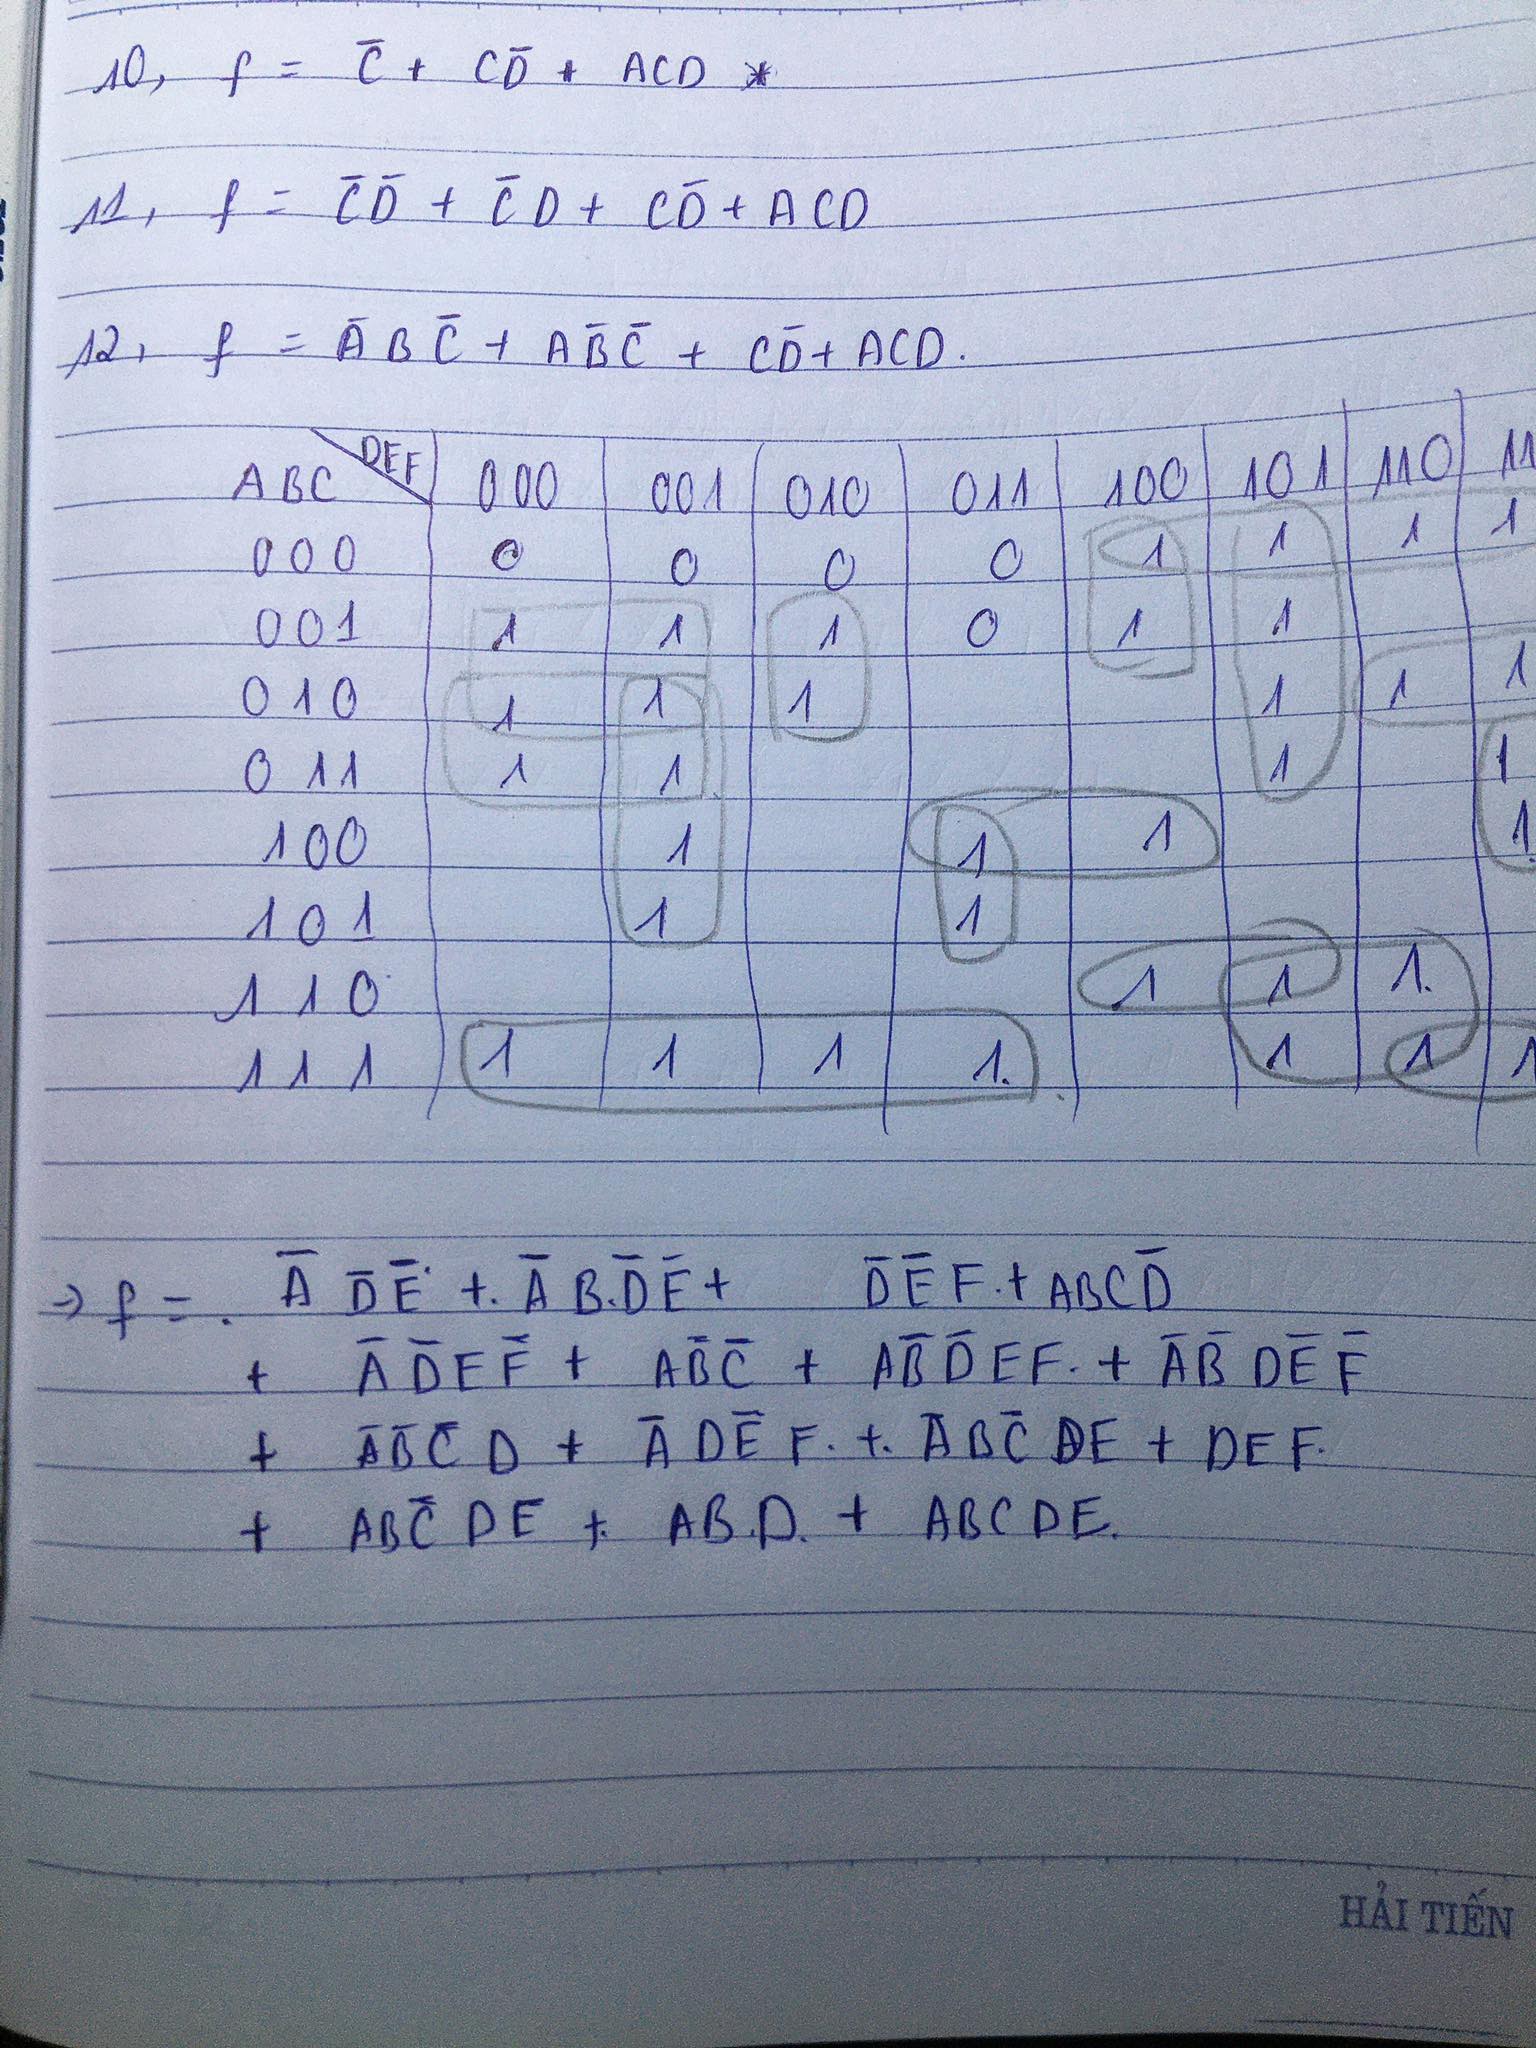 10, f = C̄ + CD̄ + ACD *
11, f = C̄D̄ + C̄D + CD̄ + ACD
12, f = ĀBC̄ + AB̄C̄ + CD̄ + ACD.
ABC DEF 000 001 010 011 100 101 110 11
000 0 0 0 0 1 1 1 1
001 1 1 1 0 1 1
010 1 1 1 1 1 1
011 1 1 1 1
100 1 1 1 1.
101 1 1
110 1 1 1.
111 1 1 1 1. 1 1 1
⇒ f = . ĀD̄Ē + . ĀB.D̄Ē + D̄ĒF. + ABCD̄
+ ĀD̄EF̄ + AB̄C̄ + AB̄D̄EF. + ĀB̄DĒF̄
+ ĀB̄C̄D + ĀDĒF. +. ĀBC̄DE + DEF.
+ ABC̄DĒ +. AB.D. + ABCDE.
HẢI TIẾN